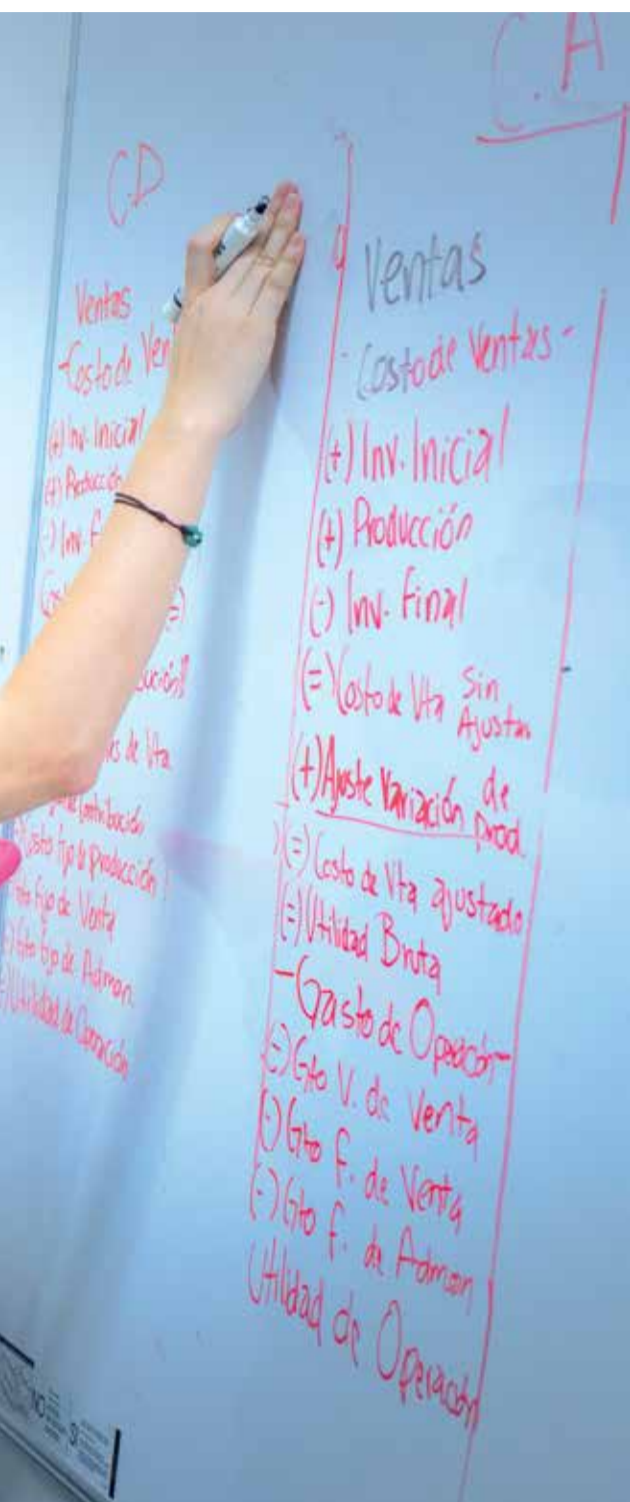 C.D
Ventas
-Costo de Ven
(+) Inv. Inicial
(+) Producción
(-) Inv. F
ución
de Vta
Contribución
Costo fijo de Producción
fijo de Venta
Gto fijo de Admon.
Utilidad de Operación
C.A
Ventas
- Costo de Ventas -
(+) Inv. Inicial
(+) Producción
(-) Inv. Final
(=) Costo de Vta Sin Ajustar
(+) Ajuste Variación de Prod.
(=) Costo de Vta ajustado
(=) Utilidad Bruta
- Gasto de Operación -
(-) Gto V. de Venta
(-) Gto F. de Venta
(-) Gto F. de Admon
Utilidad de Operación
NO
SI